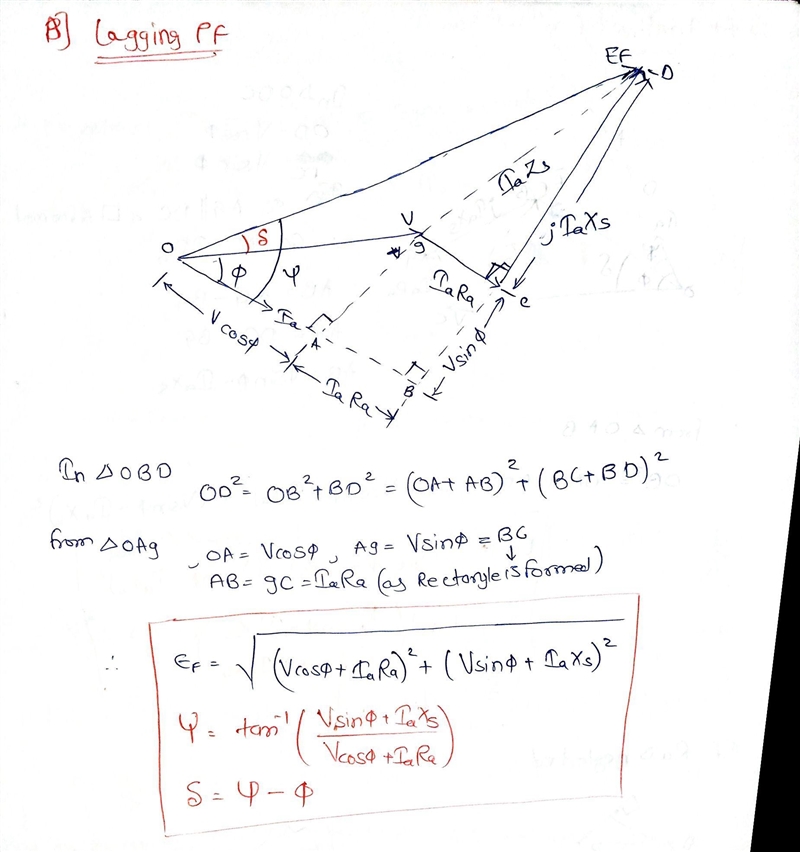 B] Lagging PF
EF
D
IaZs
V
jIaXs
δ
g
O
φ
ψ
IaRa
C
Ia
A
Vcosφ
Vsinφ
B
IaRa
In △OBD OD² = OB² + BD² = (OA + AB)² + (BC + BD)²
from △OAg , OA = Vcosφ , Ag = Vsinφ = BC
↓
AB = gC = IaRa (as Rectangle is formed)
∴ EF = √(Vcosφ + IaRa)² + (Vsinφ + IaXs)²
ψ = tan⁻¹ (Vsinφ + IaXs / Vcosφ + IaRa)
δ = ψ − φ